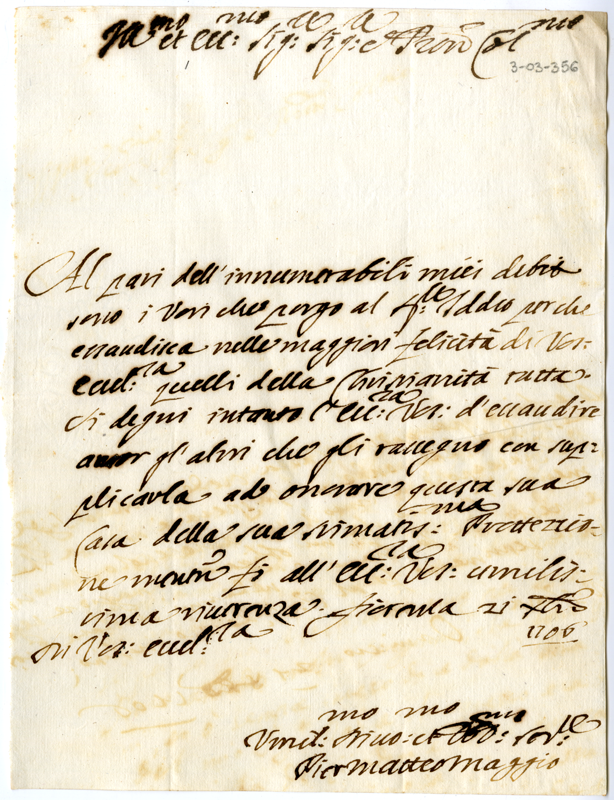 Ill.mo et Ecc.mo Sig.re Sig.r e Pron Col.mo
3-03-356
Al pari dell'innumerabili miei debiti
sono i Voti che porgo al S.re Iddio perche
essaudisca nelle maggiori felicità di Vos:
eccel.za quelli della Chrisrianità tutta.
Si degni intanto l'ecc:za Vos: d'essaudire
ancor gl'altri che gli rassegno con sup=
plicarla ad onorare questa sua
Casa della sua stimatis:ma Protterrio=
ne mentre fò all'ecc:za Vos: umilis=
sima riverenza. Fiorenza 21 Xbre
1706
Di Vos: eccel:za
Umil:mo Divo:mo et Obb:mo Ser:re
Pier Matteo Maggio